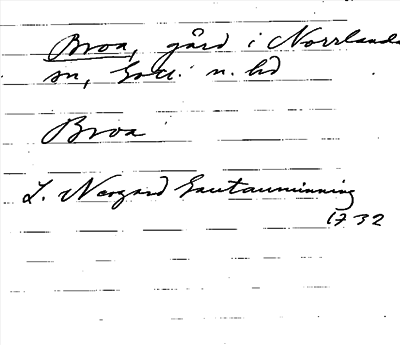 Broa, gård i Norrlanda
sn, Gotl. n. hd
Broa
L. Neogard Gautauminning
1732